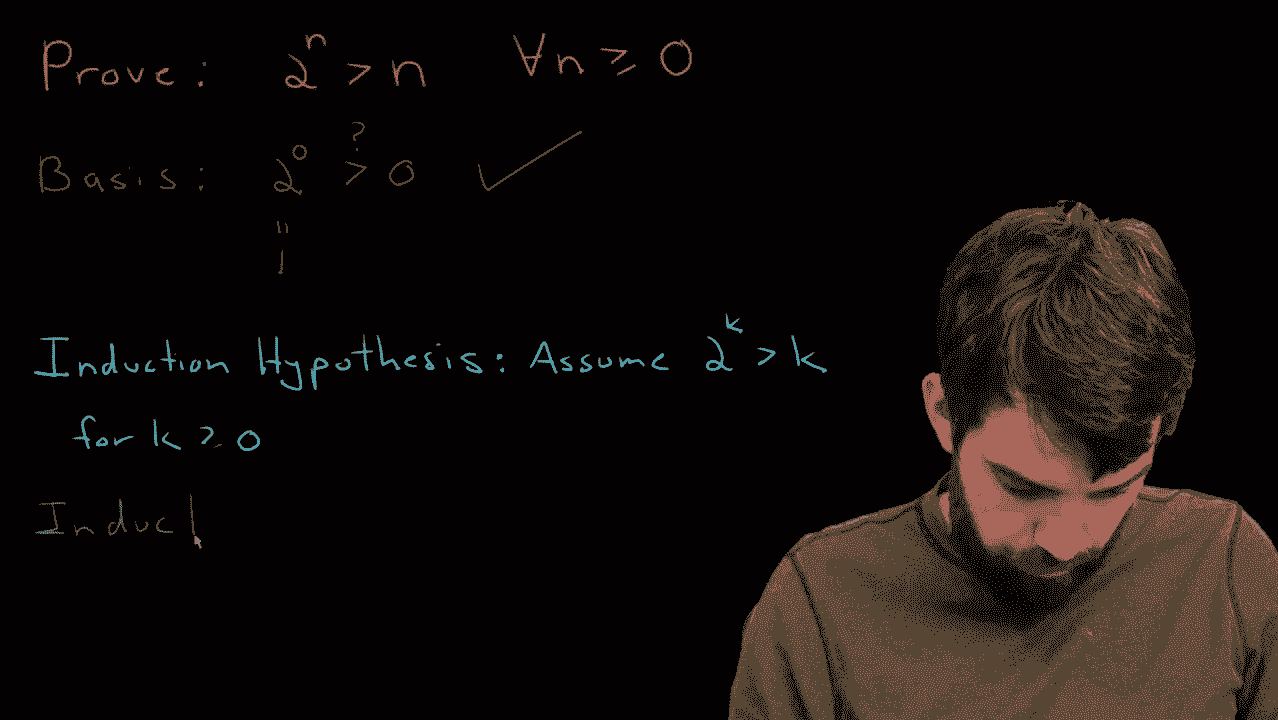 Prove: 2ⁿ > n ∀n ≥ 0
Basis: 2⁰ >? 0 ✓
"
1
Induction Hypothesis: Assume 2ᵏ > k
for k ≥ 0
Induc|